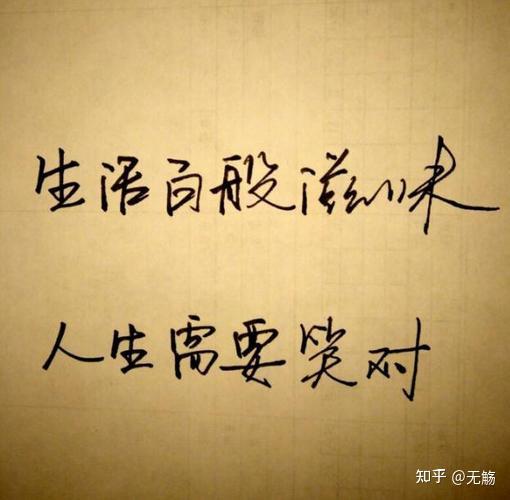 生活百般滋味
人生需要笑对
知乎 @无觞